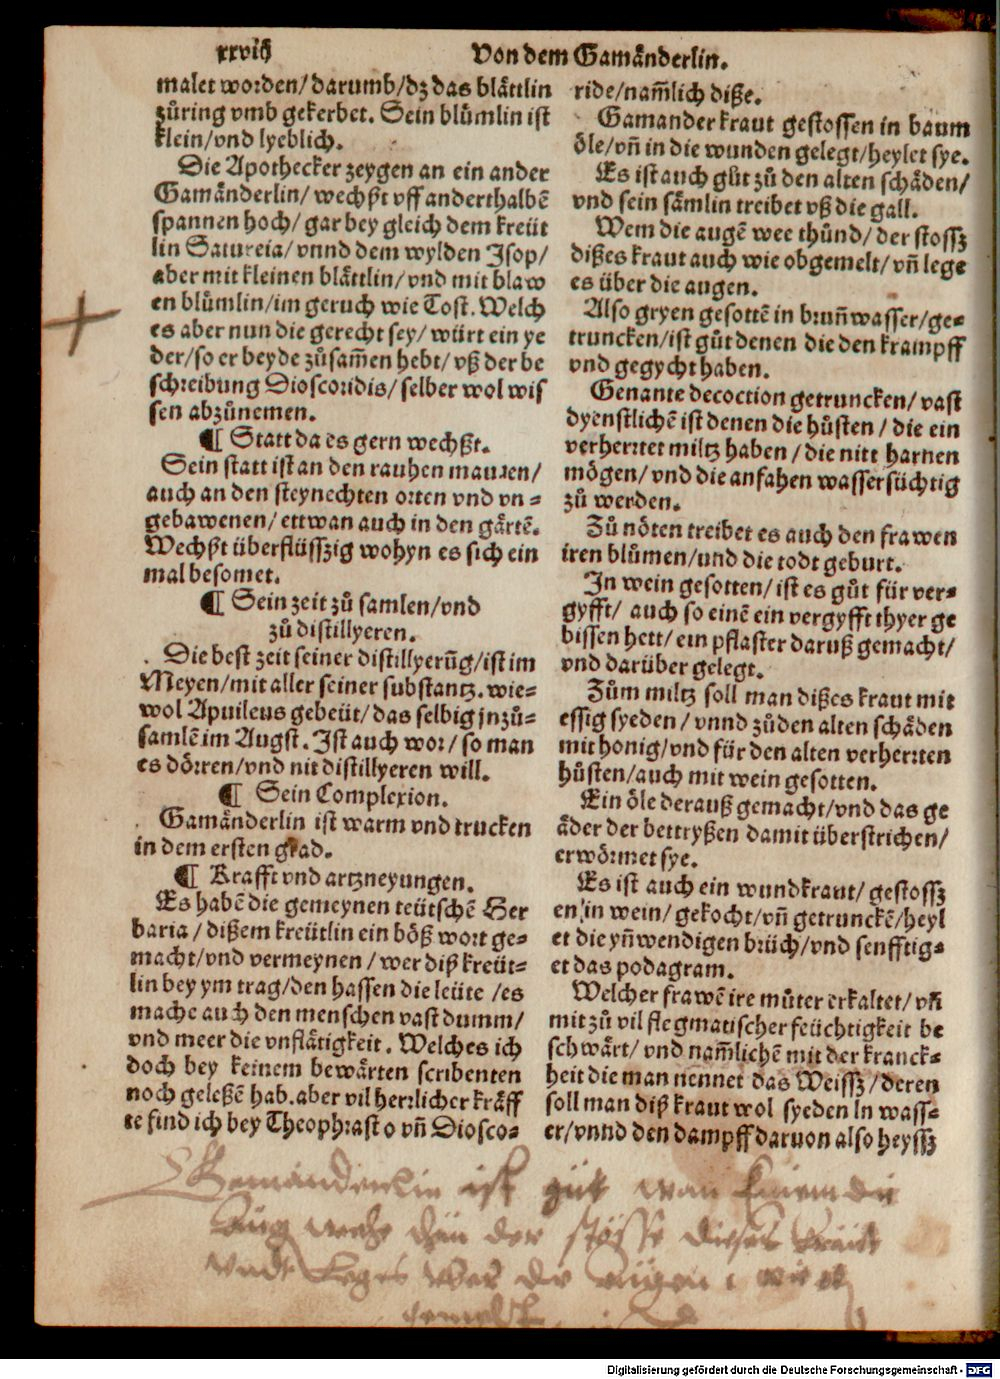 xxviij
Von dem Gamånderlin.
malet worden/darumb/dz das blåttlin
zůring vmb gekerbet. Sein blůmlin ist
klein/vnd lyeblich.
Die Apothecker zeygen an ein ander
Gamånderlin/ wechßt vff anderthalbē
spannen hoch/ gar bey gleich dem kreüt
lin Satureia/vnnd dem wylden Jsop/
aber mit kleinen blåttlin/vnd mit blaw
en blůmlin/im geruch wie Tost. Welch
es aber nun die gerecht sey/ würt ein ye
der/so er beyde zůsam̄en hebt/ vß der be
schreibung Dioscoridis/ selber wol wis
sen abzůnemen.
¶ Statt da es gern wechßt.
Sein statt ist an den rauhen mauren/
auch an den steynechten orten vnd vn-
gebawenen/ ettwan auch in den gårtē.
Wechßt überflüssig wohyn es sich ein
mal besomet.
¶ Sein zeit zů samlen/vnd
zů distillyeren.
Die best zeit seiner distillyerūg/ist im
Meyen/mit aller seiner substantz. wie-
wol Apuileus gebeüt/das selbig jnzů-
samlē im Augst. Jst auch wor/ so man
es dörren/vnd nit distillyeren will.
¶ Sein Complexion.
Gamånderlin ist warm vnd trucken
in dem ersten grad.
¶ Krafft vnd artzneyungen.
Es habē die gemeynen teütschē Her
baria/ dißem kreütlin ein böß wort ge-
macht/vnd vermeynen/wer diß kreüt-
lin bey ym trag/den hassen die leüte/es
mache auch den menschen vast dumm/
vnd meer die vnflåtigkeit. Welches ich
doch bey keinem bewårten scribenten
noch geleßē hab. aber vil herrlicher kråff
te find ich bey Theophrasto vn̄ Diosco-
ride/nam̄lich diße.
Gamander kraut gestossen in baum
öle/vn̄ in die wunden gelegt/heylet sye.
Es ist auch gůt zů den alten schåden/
vnd sein såmlin treibet vß die gall.
Wem die augē wee thůnd/der stossz
dißes kraut auch wie obgemelt/vn̄ lege
es über die augen.
Also gryen gesottē in brun̄wasser/ge-
truncken/ist gůt denen die den krampff
vnd gegycht haben.
Genante decoction getruncken/ vast
dyenstlichē ist denen die hůsten/ die ein
verhertet miltz haben/die nitt harnen
mögen/vnd die anfahen wassersüchtig
zů werden.
Zů nöten treibet es auch den frawen
iren blůmen/vnd die todt geburt.
Jn wein gesotten/ist es gůt für ver-
gyfft/ auch so einē ein vergyfft thyer ge
bissen hett/ein pflaster daruß gemacht/
vnd darüber gelegt.
Zům miltz soll man dißes kraut mit
essig syeden/vnnd zů den alten schåden
mit honig/vnd für den alten verherten
hůsten/auch mit wein gesotten.
Ein öle derauß gemacht/vnd das ge
åder der bettryßen damit überstrichen/
erwörmet sye.
Es ist auch ein wundkraut/ gestossz
en/in wein/gekocht/vn̄ getrunckē/heyl
et die yn̄wendigen brüch/vnd senfftig-
et das podagram.
Welcher frawē ire můter erkaltet/vn̄
mit zů vil flegmatischer feüchtigkeit be
schwårt/ vnd nam̄lichē mit der kranck-
heit die man nennet das Weissz/deren
soll man diß kraut wol syeden ln wass-
er/vnnd den dampff daruon also heyssz
Gemanderlin ist gůt wan Einem die
Aug wehe thůn der stosse dieses kraut
vndt Leges vber die Augen
gemelt
Digitalisierung gefördert durch die Deutsche Forschungsgemeinschaft - DFG